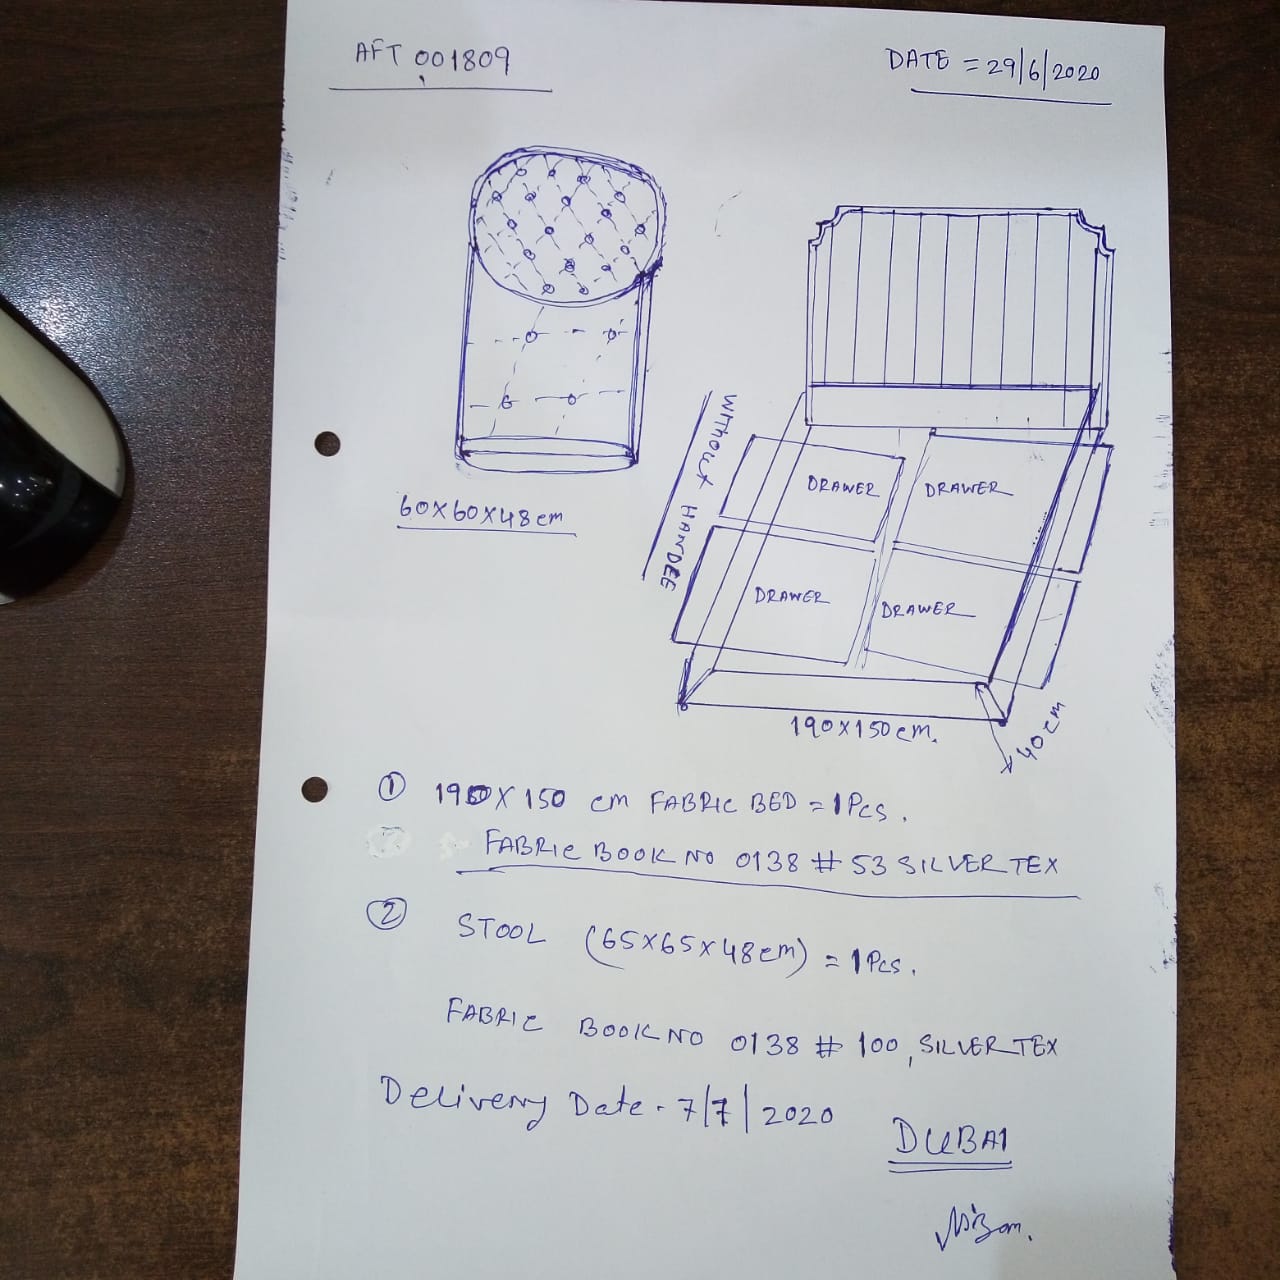 AFT 001809
DATE = 29/6/2020
60X60X48cm
WITHOUT HANDLE
DRAWER
DRAWER
DRAWER
DRAWER
190X150cm.
40cm
① 190X150 cm FABRIC BED = 1Pcs.
FABRIC BOOK NO 0138 # 53 SILVERTEX
② STOOL (65X65X48cm) = 1Pcs.
FABRIC BOOK NO 0138 # 100, SILVERTEX
Delivery Date - 7/7/2020
DUBAI